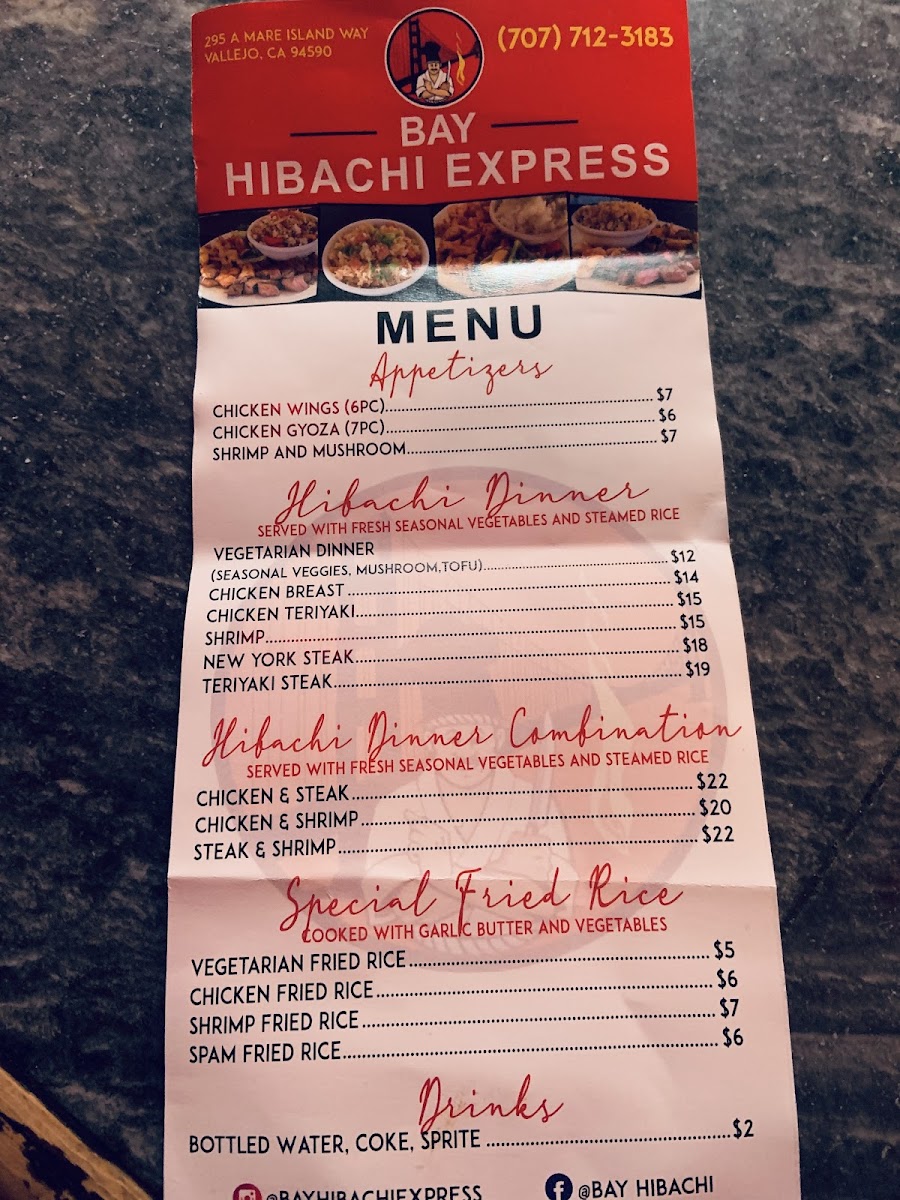 295 A MARE ISLAND WAY
VALLEJO, CA 94590
(707) 712-3183
BAY
HIBACHI EXPRESS
MENU
Appetizers
CHICKEN WINGS (6PC)........$7
CHICKEN GYOZA (7PC)........$6
SHRIMP AND MUSHROOM........$7
Hibachi Dinner
SERVED WITH FRESH SEASONAL VEGETABLES AND STEAMED RICE
VEGETARIAN DINNER
(SEASONAL VEGGIES, MUSHROOM,TOFU)........$12
CHICKEN BREAST........$14
CHICKEN TERIYAKI........$15
SHRIMP........$15
NEW YORK STEAK........$18
TERIYAKI STEAK........$19
Hibachi Dinner Combination
SERVED WITH FRESH SEASONAL VEGETABLES AND STEAMED RICE
CHICKEN & STEAK........$22
CHICKEN & SHRIMP........$20
STEAK & SHRIMP........$22
Special Fried Rice
COOKED WITH GARLIC BUTTER AND VEGETABLES
VEGETARIAN FRIED RICE........$5
CHICKEN FRIED RICE........$6
SHRIMP FRIED RICE........$7
SPAM FRIED RICE........$6
Drinks
BOTTLED WATER, COKE, SPRITE........$2
@BAYHIBACHIEXPRESS
@BAY HIBACHI